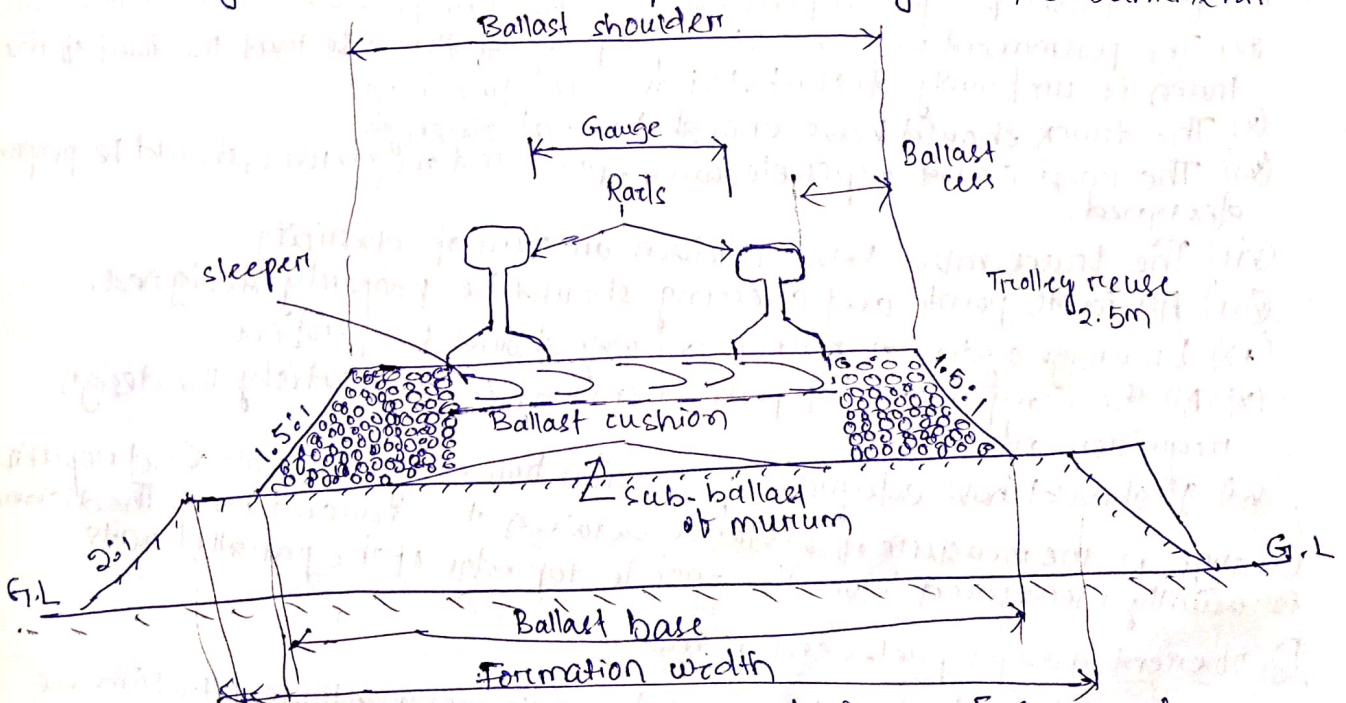 Ballast shoulder
Gauge
Ballast
cess
Rails
sleeper
Trolley reuse
2.5m
1.5:1
1.5:1
Ballast cushion
sub-ballast
of murum
2:1
G.L
G.L
Ballast base
Formation width